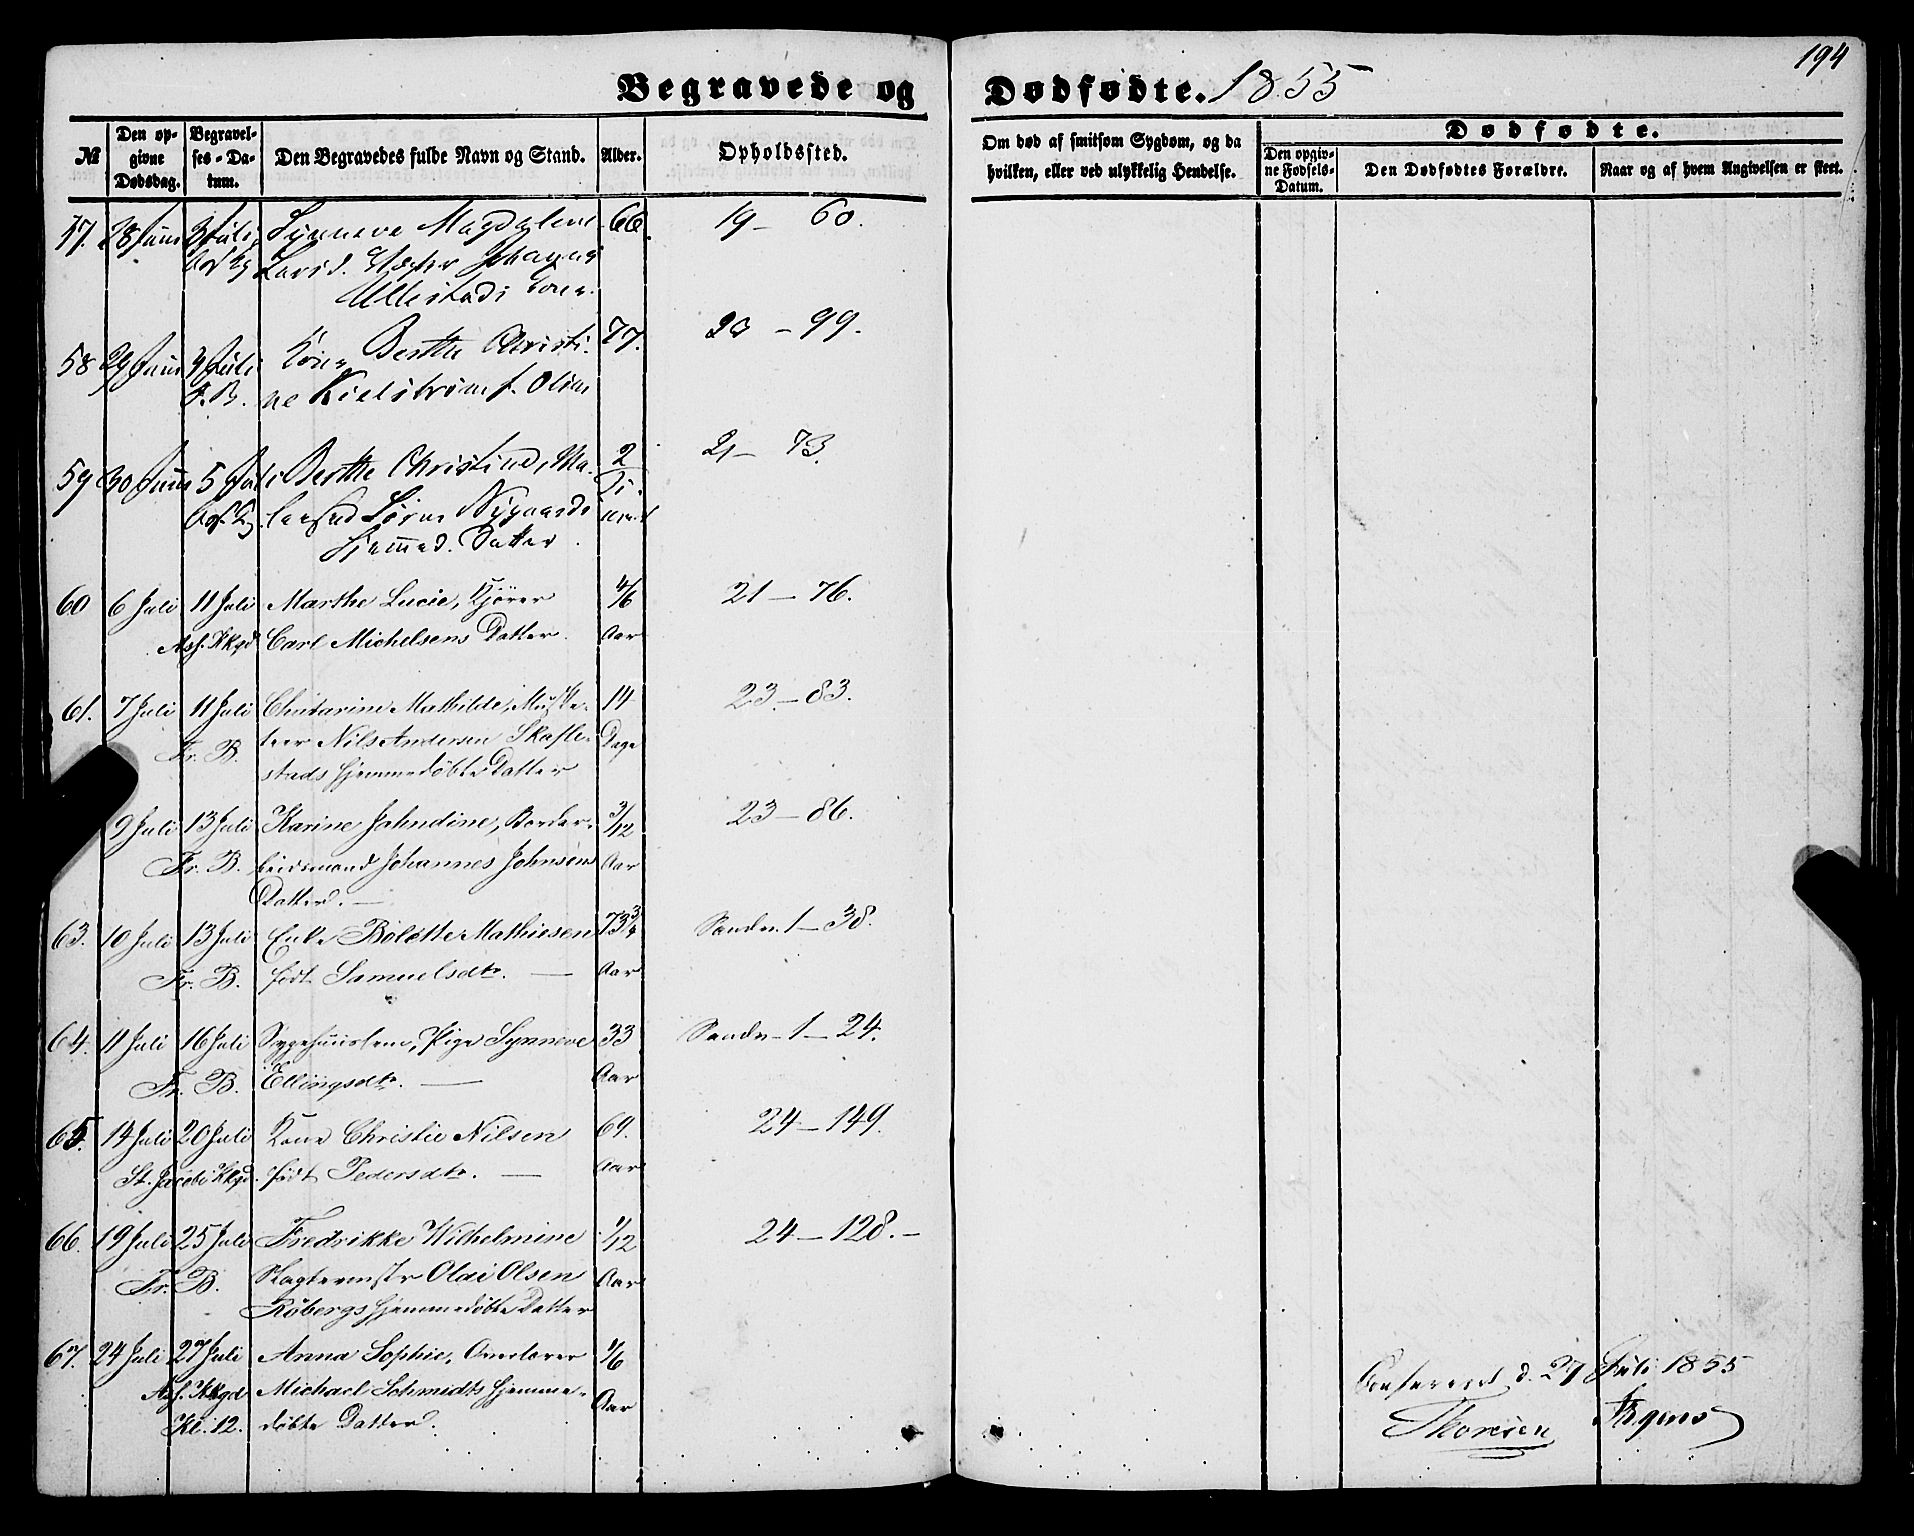 194
Begravede og Dødfødte. 1855
№
Den opgivne Dødsdag.
Begravelses-Datum.
Den Begravedes fulde Navn og Stand.
Alder.
Opholdssted.
Om død af smitsom Sygdom, og da hvilken, eller ved ulykkelig Hendelse.
Dødfødte.
Den opgivne Fødsels-Datum.
Den Dødfødtes Forældre.
Naar og af hvem Angivelsen er skeet.
57. 28 Juni 3 Juli Synneve Magdalene 66. 19 - 60.
Johannes
Ullestads Kone.
58 29 Juni 4 Juli Kone Berthe Christi- 77. 23 - 99.
F. B. ne Kielstrøm f. Olsen
59 30 Juni 5 Juli Berthe Christine, Ma- 2 21 - 73.
Søren Nygaards
Hjemmed. Datter
60 6 Juli 11 Juli Marthe Lucie, Kjører 4/6 21 - 76.
Ass. Kkgd Carl Michelsens Datter. Aar
61. 7 Juli 11 Juli Cathrine Mathilde, Muske- 14 23 - 83.
Fr. B. teer Nils Andersen Skafle- Dage
stads hjemmedøbte Datter
9 Juli 13 Juli Karine Jahndine, Bordar- 3/12 23 - 86.
Fr. B. beidsmand Johannes Johnsøns Aar
Datter. —
63. 10 Juli 13 Juli Enke Bolette Mathiesen 73 3/4 Sandv. 1 - 38.
Fr. B. født Samuelsdtr. — Aar
64. 11 Juli 16 Juli Sygehuuslem, Pige Synneve 33 Sandv - 1 - 24.
Fr. B. Ellingsdtr. — Aar
65. 14 Juli 20 Juli Kone Christie Nilsen 69. 24 - 149.
St. Jacobi Kkgd. født Pedersdtr. — Aar
66. 19 Juli 25 Juli Fredrikke Wilhelmine 1/12 24 - 128. -
Fr. B. Slagtermstr Olai Olsen Aar
Røbergs hjemmedøbte Datter
67. 24 Juli 27 Juli Anna Sophie, 1/6
Ass. Kkgd Michael Schmidts hjemme- Aar
Kl. 12. døbte Datter.
Confereret d. 27 Juli 1855
Thoresen